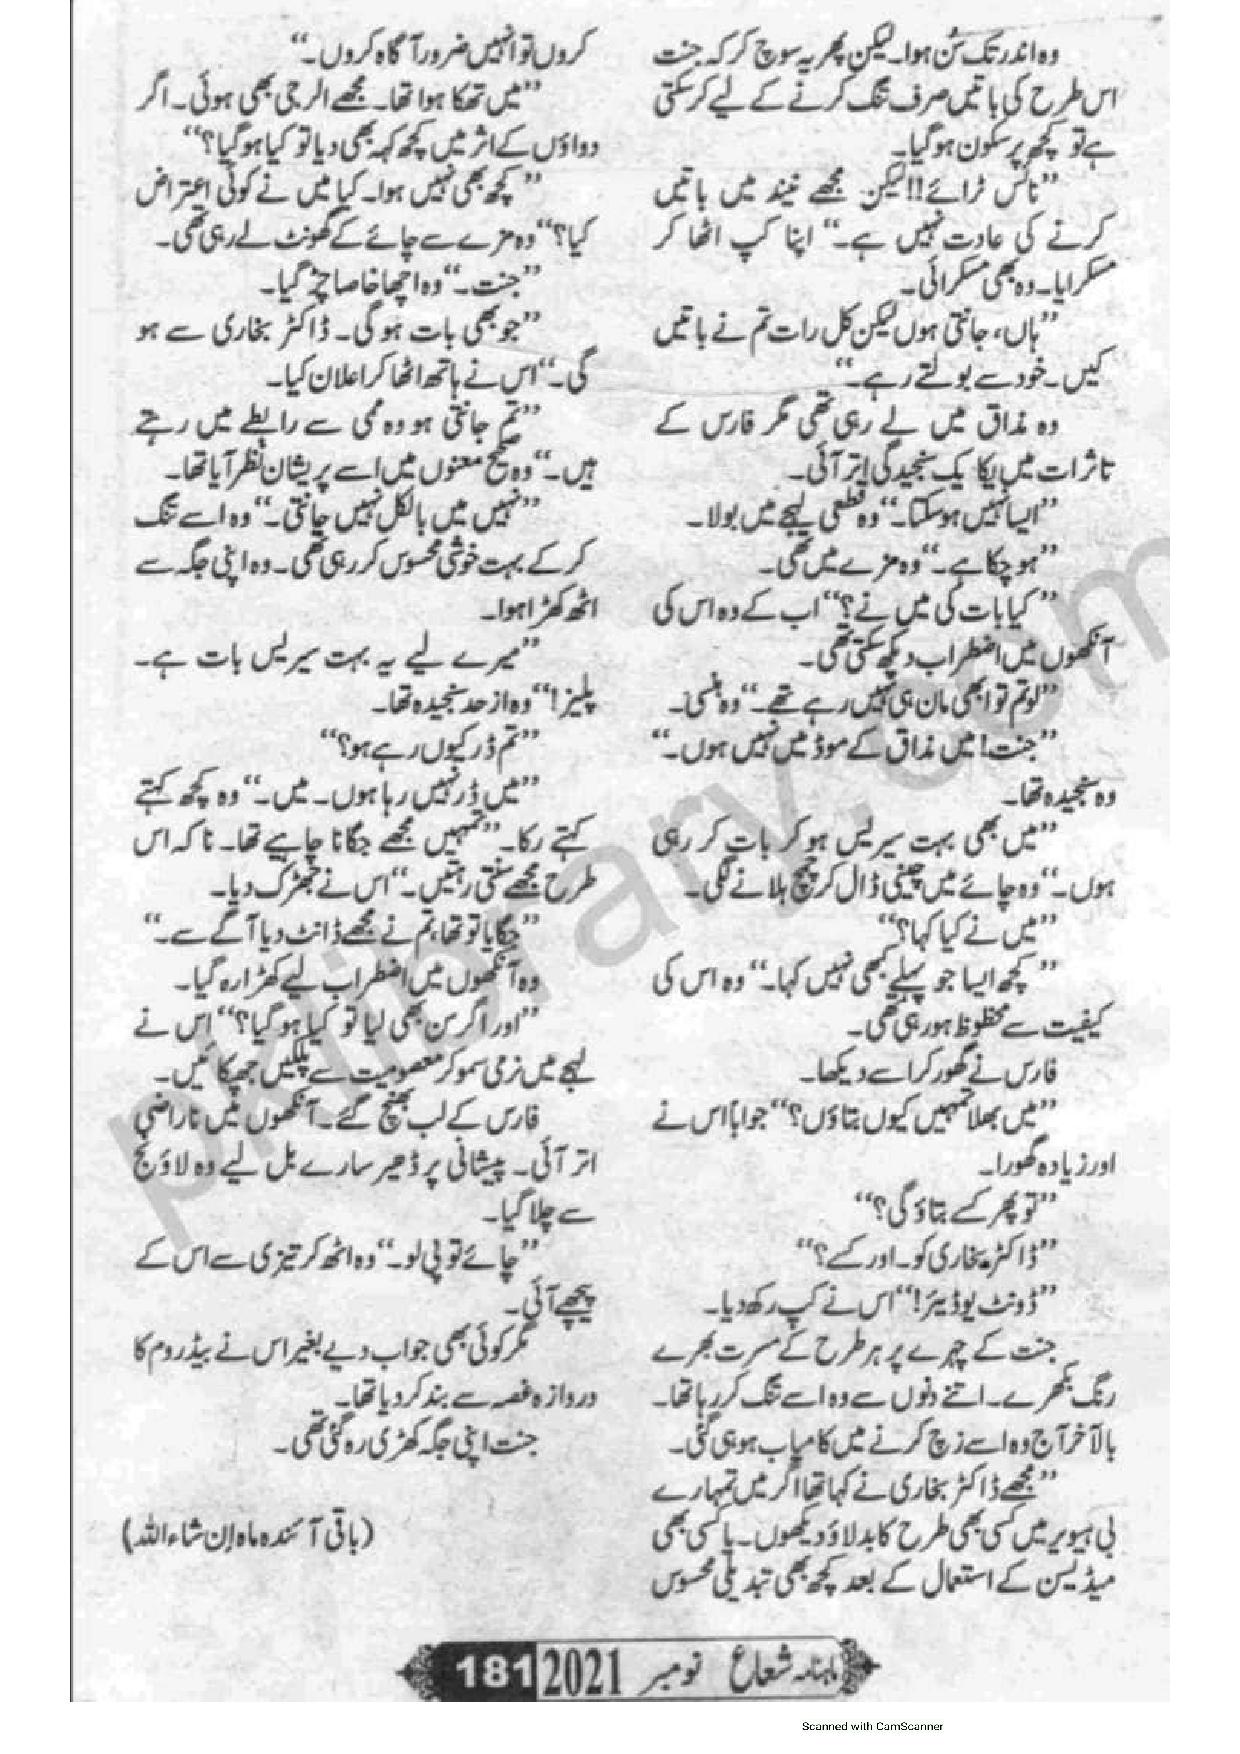 وہ اندر تک سُن ہوا۔ لیکن پھر یہ سوچ کر کہ جنت
اس طرح کی باتیں صرف تنگ کرنے کے لیے کر سکتی
ہے تو کچھ پر سکون ہو گیا۔
”نائس ٹرائے!! لیکن مجھے نیند میں باتیں
کرنے کی عادت نہیں ہے۔“ اپنا کپ اٹھا کر
مسکرایا۔ وہ بھی مسکرائی۔
”ہاں، جانتی ہوں لیکن کل رات تم نے باتیں
کیں۔ خود سے بولتے رہے۔“
وہ مذاق میں لے رہی تھی مگر فارس کے
تاثرات میں یکا یک سنجیدگی اتر آئی۔
”ایسا نہیں ہو سکتا۔“ وہ قطعی لہجے میں بولا۔
”ہو چکا ہے۔“ وہ مزے میں تھی۔
”کیا بات کی میں نے؟“ اب کے وہ اس کی
آنکھوں میں اضطراب دیکھ سکتی تھی۔
”لو تم تو ابھی مان ہی نہیں رہے تھے۔“ وہ ہنسی۔
”جنت! میں مذاق کے موڈ میں نہیں ہوں۔“
وہ سنجیدہ تھا۔
”میں بھی بہت سیریس ہو کر بات کر رہی
ہوں۔“ وہ چائے میں چینی ڈال کر چمچ ہلانے لگی۔
”میں نے کیا کہا؟“
”کچھ ایسا جو پہلے کبھی نہیں کہا۔“ وہ اس کی
کیفیت سے محظوظ ہو رہی تھی۔
فارس نے گھور کر اسے دیکھا۔
”میں بھلا تمہیں کیوں بتاؤں؟“ جواباً اس نے
اور زیادہ گھورا۔
”تو پھر کسے بتاؤ گی؟“
”ڈاکٹر بخاری کو۔ اور کسے؟“
”ڈونٹ یو ڈیئر!“ اس نے کپ رکھ دیا۔
جنت کے چہرے پر ہر طرح کے مسرت بھرے
رنگ بکھرے۔ اتنے دنوں سے وہ اسے تنگ کر رہا تھا۔
بالآخر آج وہ اسے زچ کرنے میں کامیاب ہو ہی گئی۔
”مجھے ڈاکٹر بخاری نے کہا تھا اگر میں تمہارے
بی ہیویر میں کسی بھی طرح کا بدلاؤ دیکھوں۔ یا کسی بھی
میڈیسن کے استعمال کے بعد کچھ بھی تبدیلی محسوس
کروں تو انہیں ضرور آگاہ کروں۔“
”میں تھکا ہوا تھا۔ مجھے الرجی بھی ہوئی۔ اگر
دواؤں کے اثر میں کچھ کہہ بھی دیا تو کیا ہو گیا؟“
”کچھ بھی نہیں ہوا۔ کیا میں نے کوئی اعتراض
کیا؟“ وہ مزے سے چائے کے گھونٹ لے رہی تھی۔
”جنت۔“ وہ اچھا خاصا چڑ گیا۔
”جو بھی بات ہو گی۔ ڈاکٹر بخاری سے ہو
گی۔“ اس نے ہاتھ اٹھا کر اعلان کیا۔
”تم جانتی ہو وہ ممی سے رابطے میں رہتے
ہیں۔“ وہ صحیح معنوں میں اسے پریشان نظر آیا تھا۔
”نہیں میں بالکل نہیں جانتی۔“ وہ اسے تنگ
کر کے بہت خوشی محسوس کر رہی تھی۔ وہ اپنی جگہ سے
اٹھ کھڑا ہوا۔
”میرے لیے یہ بہت سیریس بات ہے۔
پلیز!“ وہ از حد سنجیدہ تھا۔
”تم ڈر کیوں رہے ہو؟“
”میں ڈر نہیں رہا ہوں۔ میں۔“ وہ کچھ کہتے
کہتے رکا۔ ”تمہیں مجھے جگانا چاہیے تھا۔ نا کہ اس
طرح مجھے سنتی رہتیں۔“ اس نے جھڑک دیا۔
”جگایا تو تھا، تم نے مجھے ڈانٹ دیا آگے سے۔“
وہ آنکھوں میں اضطراب لیے کھڑا رہ گیا۔
”اور اگر سن بھی لیا تو کیا ہو گیا؟“ اس نے
لہجے میں نرمی سمو کر معصومیت سے پلکیں جھپکائیں۔
فارس کے لب بھنچ گئے۔ آنکھوں میں ناراضی
اتر آئی۔ پیشانی پر ڈھیر سارے بل لیے وہ لاؤنج
سے چلا گیا۔
”چائے تو پی لو۔“ وہ اٹھ کر تیزی سے اس کے
پیچھے آئی۔
مگر کوئی بھی جواب دیے بغیر اس نے بیڈ روم کا
دروازہ غصہ سے بند کر دیا تھا۔
جنت اپنی جگہ کھڑی رہ گئی تھی۔
(باقی آئندہ ماہ ان شاء اللہ)
ماہنامہ شعاع نومبر 2021 181
pklibrary.com
Scanned with CamScanner